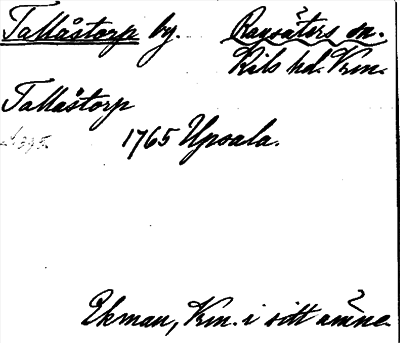 Tallåstorp by. Ransäters sn.
Kils hd. Vrm.
Tallåstorp
1765 Upsala.
Ekman, Vrm. i sitt ämne.